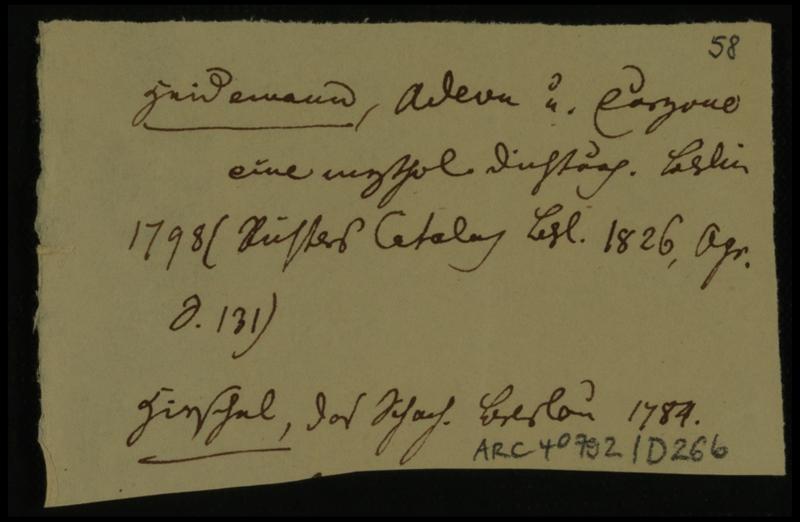 58
Heidemann, Adem u.
eine mythol. Dichtung. Berlin
1798 ( Catalog Berl. 1826, Apr.
S. 131)
Hirschel, das Schach. Breslau 1784.
ARC 4º 792 / D266